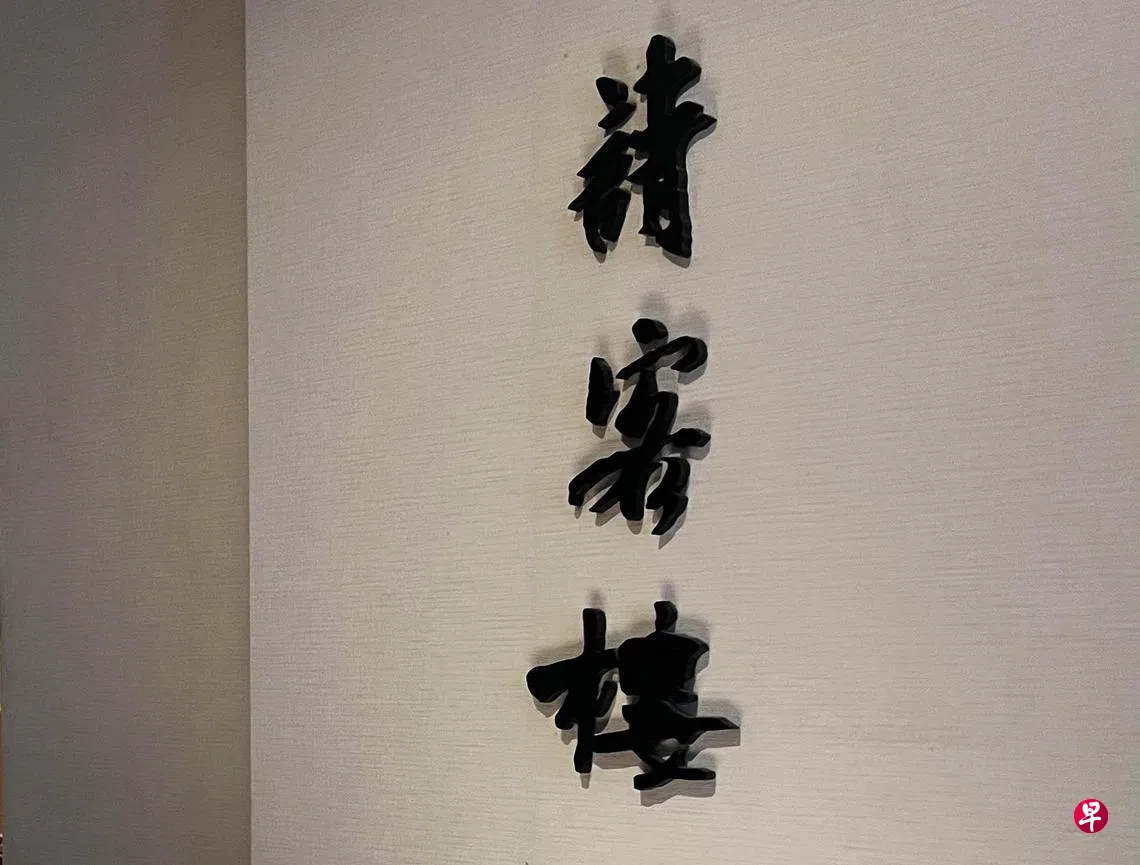 請客樓
早